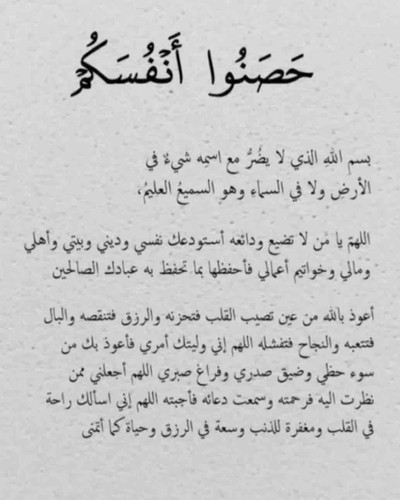 حَصَنُوا أَنْفُسَكُمْ
بسم اللهِ الذي لا يضُرُّ مع اسمِه شيءٌ في
الأرضِ ولا في السماءِ وهو السميعُ العليمُ،
اللهمّ يا من لا تضيع ودائعه أستودعك نفسي وديني وبيتي وأهلي
ومالي وخواتيم أعمالي فأحفظها بما تحفظ به عبادك الصالحين
أعوذ بالله من عين تصيب القلب فتحزنه والرزق فتنقصه والبال
فتتعبه والنجاح فتفشله اللهم إني وليتك أمري فأعوذ بك من
سوء حظي وضيق صدري وفراغ صبري اللهم أجعلني ممن
نظرت اليه فرحمته وسمعت دعائه فأجبته اللهم إني اسألك راحة
في القلب ومغفرة للذنب وسعة في الرزق وحياة كما أتمنى